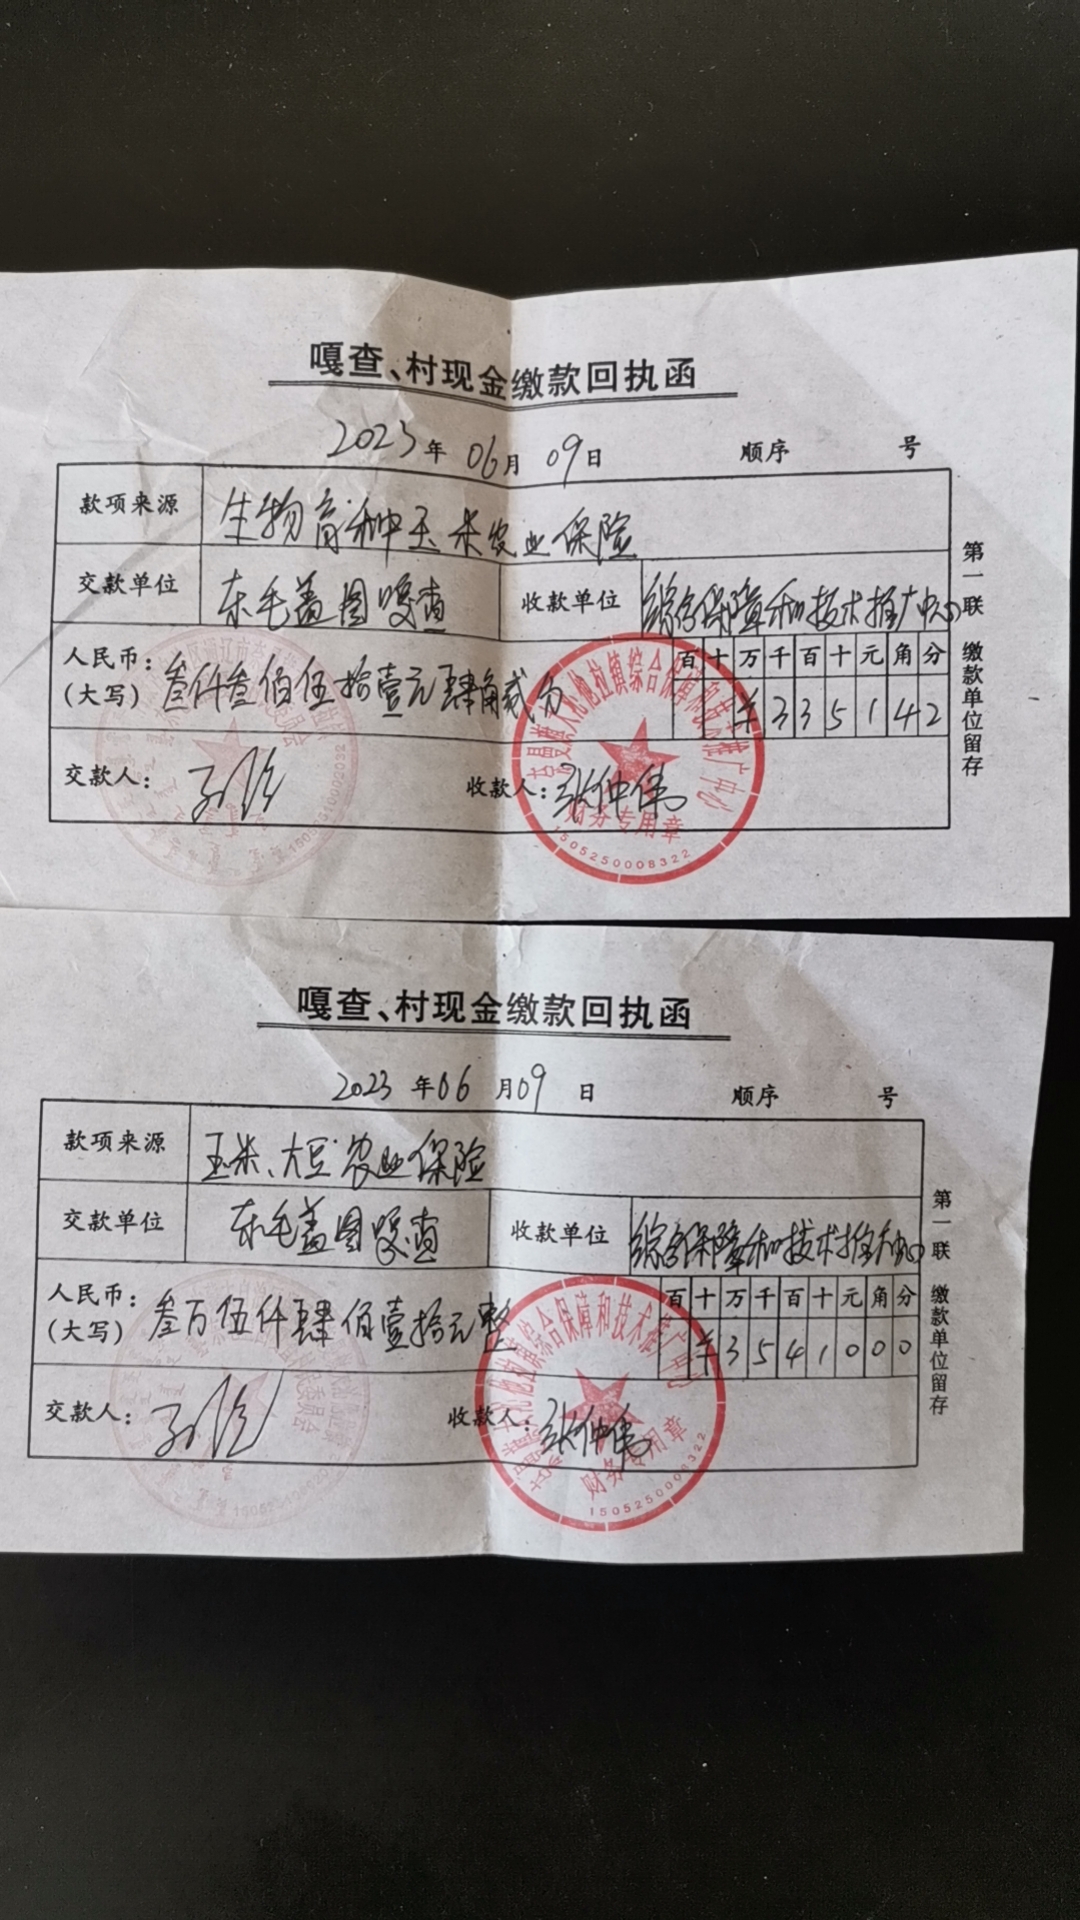 嘎查、村现金缴款回执函
2023年06月09日 顺序 号
款项来源 生物育种玉米农业保险
交款单位 东毛盖图嘎查 收款单位 综合保障和技术推广中心
人民币：(大写) 叁仟叁佰伍拾壹元肆角贰分 百十万千百十元角分
¥335142
交款人： 收款人：张仲伟
第一联 缴款单位留存
综合保障和技术推广中心
财务专用章
1505250008322
嘎查、村现金缴款回执函
2023年06月09日 顺序 号
款项来源 玉米、大豆农业保险
交款单位 东毛盖图嘎查 收款单位 综合保障和技术推广中心
人民币：(大写) 叁万伍仟肆佰壹拾元整 百十万千百十元角分
¥3541000
交款人： 收款人：张仲伟
第一联 缴款单位留存
综合保障和技术推广中心
财务专用章
1505250008322